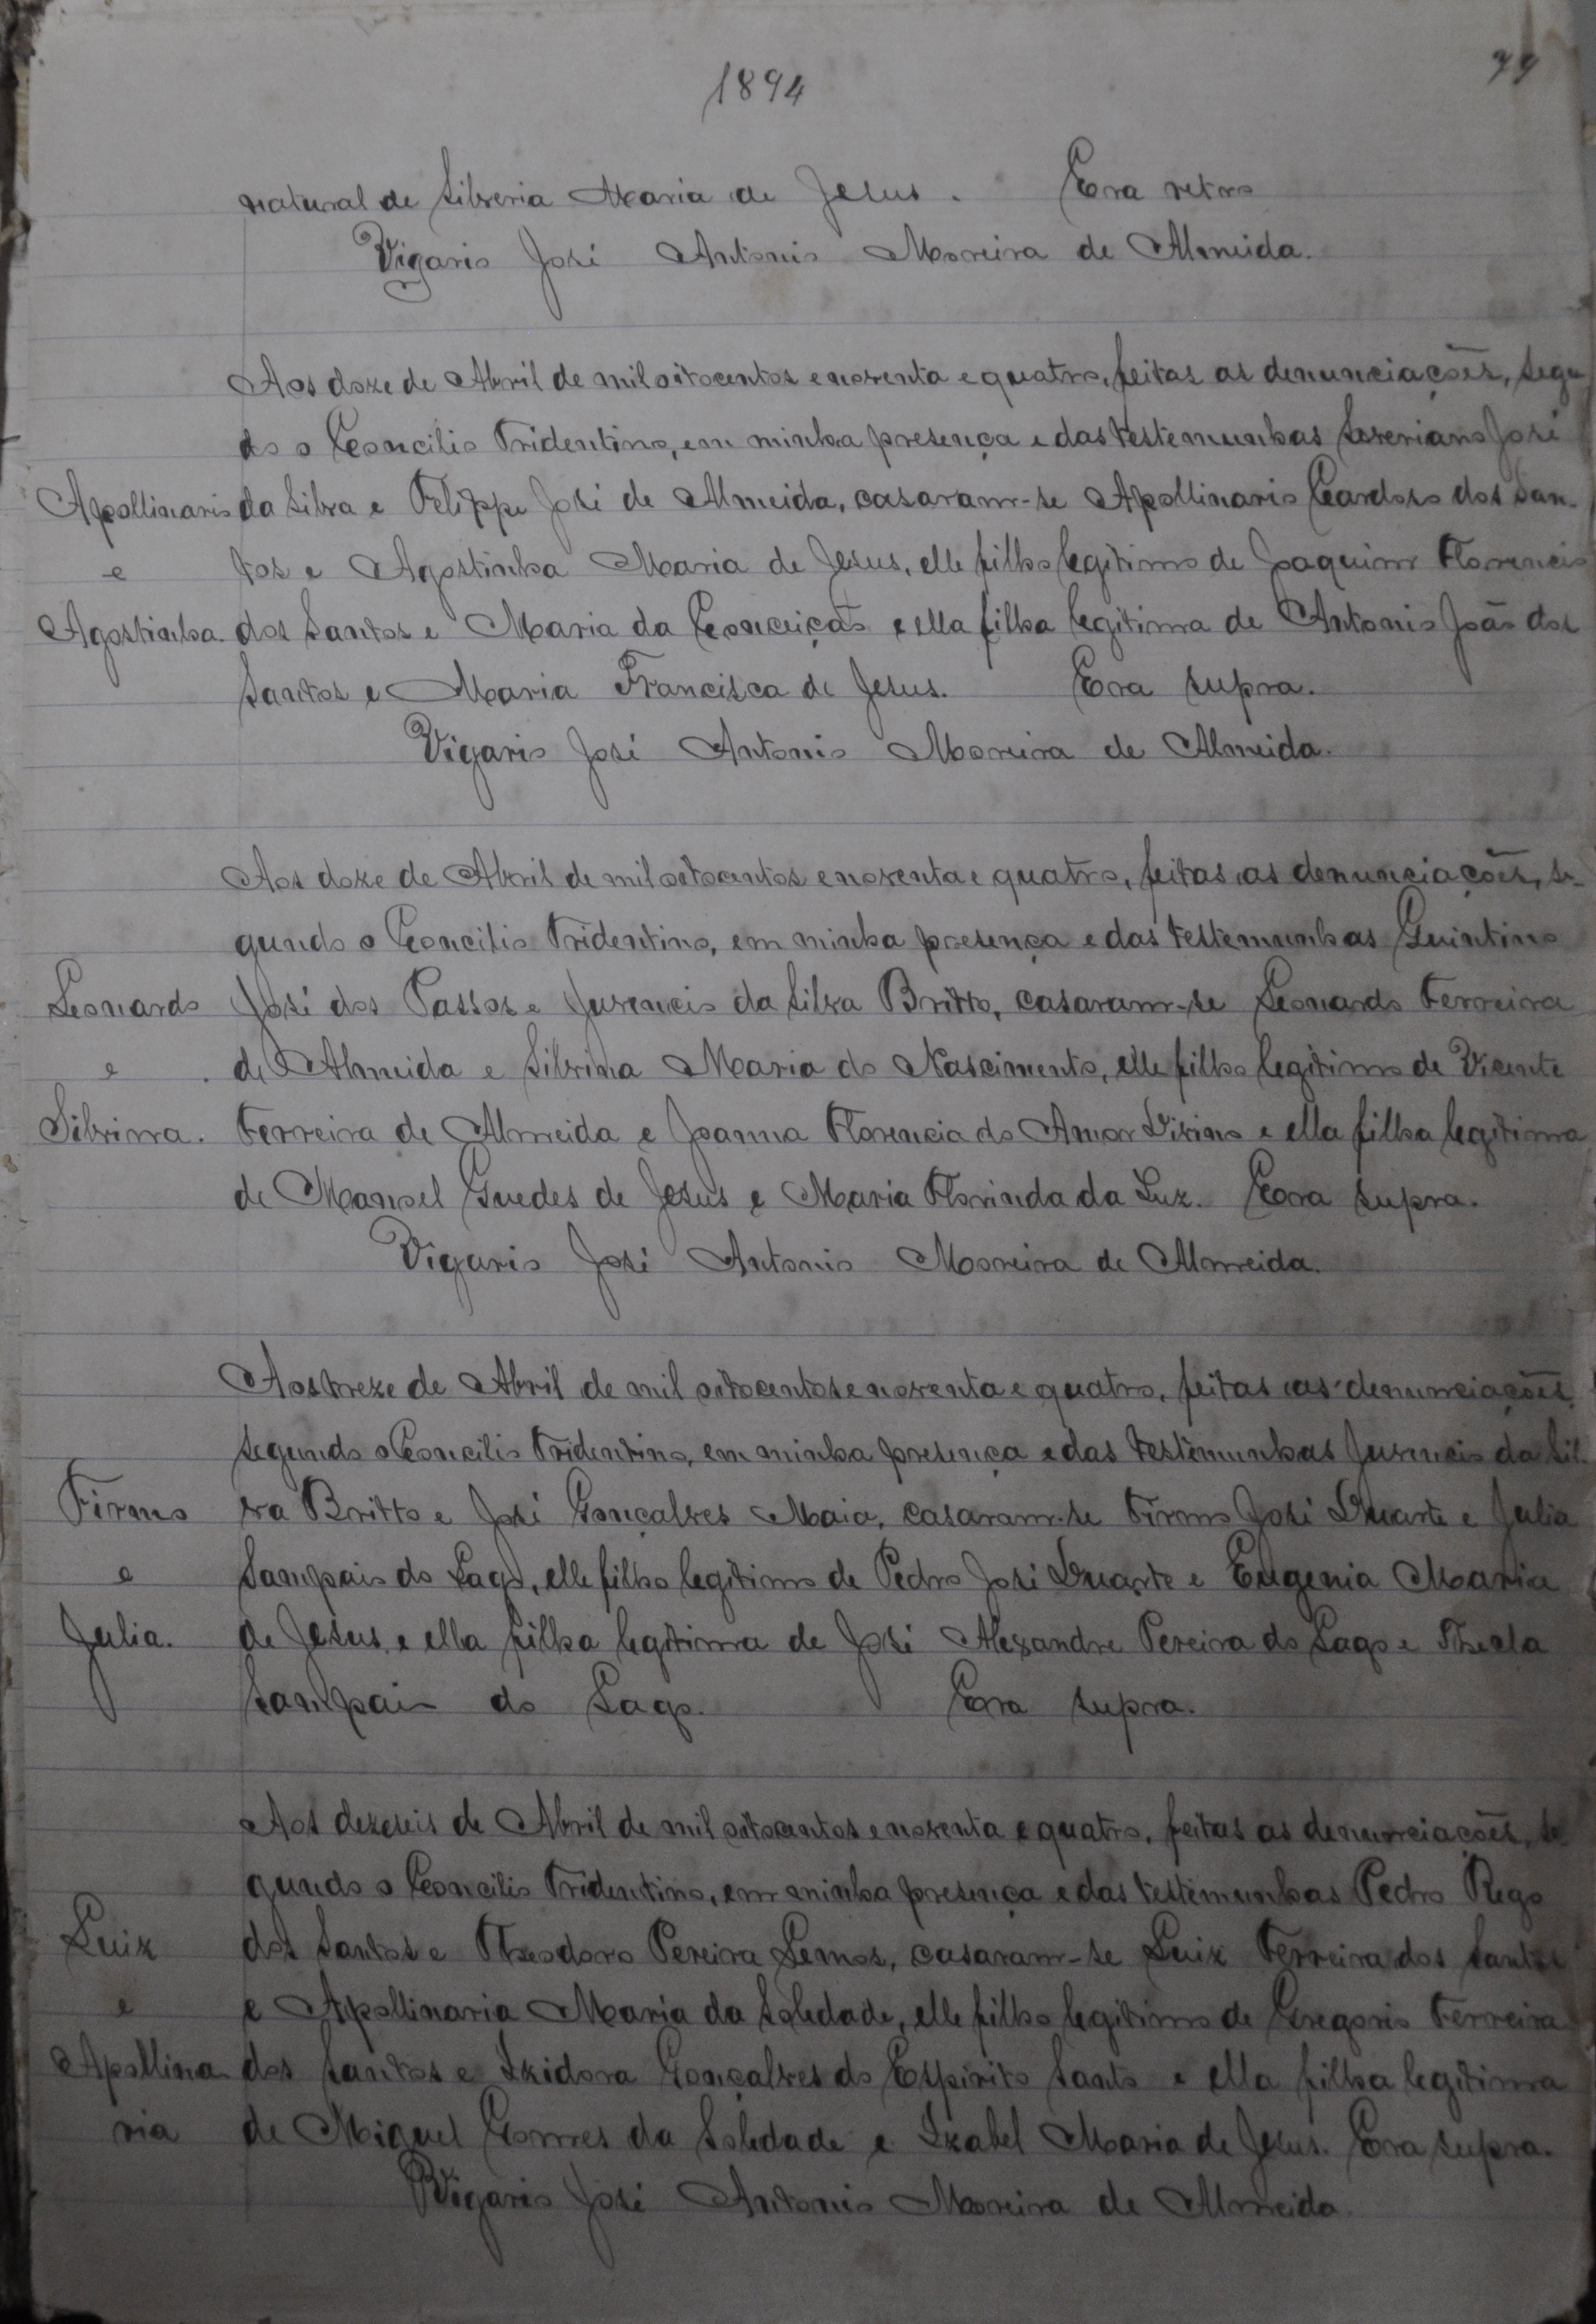 1894
natural de Silveria Maria de Jesus. Era retro
Vigario José Antonio Moreira de Almeida.
Aos doze de Abril de mil oitocentos e noventa e quatro, feitas as denunciações, segu
do o Concilio Tridentino, em minha presença e das testemunhas Severiano José
Apollinario da Silva e Felippe José de Almeida, casaram-se Apollinario Cardoso dos San-
e tos e Agostinha Maria de Jesus, elle filho legitimo de Joaquim Florencio
Agostinha. dos Santos e Maria da Conceição e ella filha legitima de Antonio João dos
Santos e Maria Francisca de Jesus. Era supra.
Vigario José Antonio Moreira de Almeida.
Aos doze de Abril de mil oitocentos e noventa e quatro, feitas as denunciações, se-
gundo o Concilio Tridentino, em minha presença e das testemunhas Guintino
Leonardo José dos Passos e Juvencio da Silva Britto, casaram-se Leonardo Ferreira
e de Almeida e Silvina Maria do Nascimento, elle filho legitimo de Vicente
Silvina. Ferreira de Almeida e Joanna Florencia do Amor Divino e ella filha legitima
de Manoel Guedes de Jesus e Maria Florinda da Luz. Era supra.
Vigario José Antonio Moreira de Almeida.
Aos treze de Abril de mil oitocentos e noventa e quatro, feitas as denunciações,
segundo o Concilio Tridentino, em minha presença e das testemunhas Juvencio da Sil-
Firmo va Britto e José Gonçalves Maia, casaram-se Firmo José Duarte e Julia
e Sampaio do Lago, elle filho legitimo de Pedro José Duarte e Eugenia Maria
Julia. de Jesus, e ella filha legitima de José Alexandre Pereira do Lago e Thecla
Sampaio do Lago. Era supra.
Aos dezeseis de Abril de mil oitocentos e noventa e quatro, feitas as denunciações, se
gundo o Concilio Tridentino, em minha presença e das testemunhas Pedro Rego
Luiz dos Santos e Theodoro Pereira Lemos, casaram-se Luiz Ferreira dos Santos
e e Apollinaria Maria da Soledade, elle filho legitimo de Gregorio Ferreira
Apollina dos Santos e Izidora Gonçalves do Espirito Santo e ella filha legitima
ria de Miguel Gomes da Soledade e Izabel Maria de Jesus. Era supra.
Vigario José Antonio Moreira de Almeida.